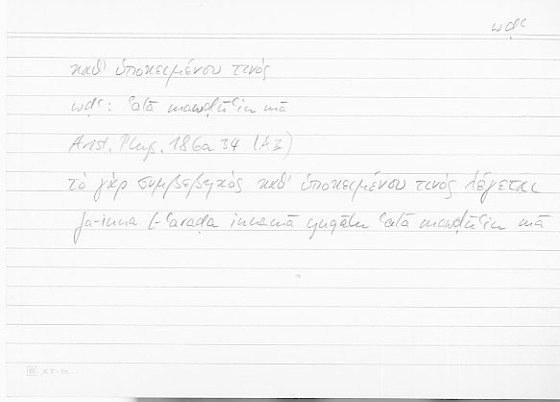 wḍʿ
καθ' ὑποκειμένου τινός
wḍʿ: ʿalā mawḍūʿin mā
Arist. Phys. 186a 34 (A3)
τὸ γὰρ συμβεβηκὸς καθ' ὑποκειμένου τινὸς λέγεται
fa-inna l-ʿaraḍa innamā yuqālu ʿalā mawḍūʿin mā